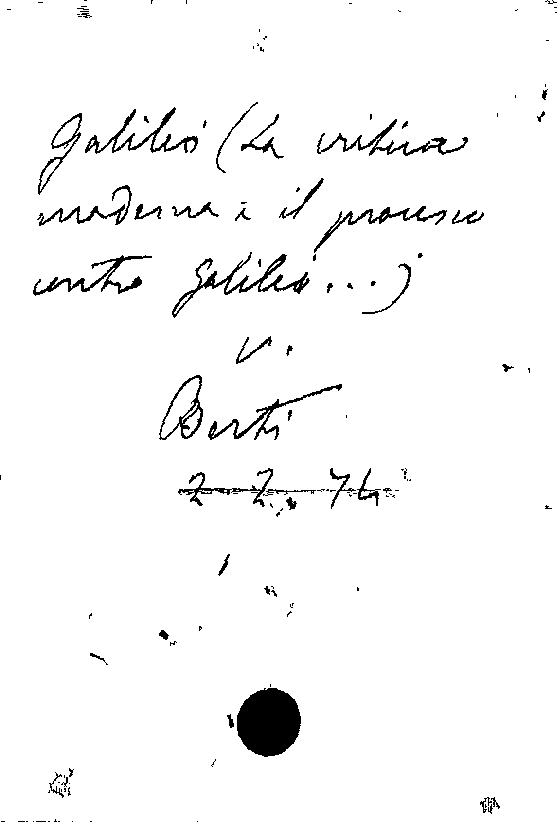 Galileo (La critica
moderna e il processo
contro Galileo...)
v.
Berti
2 2. 74